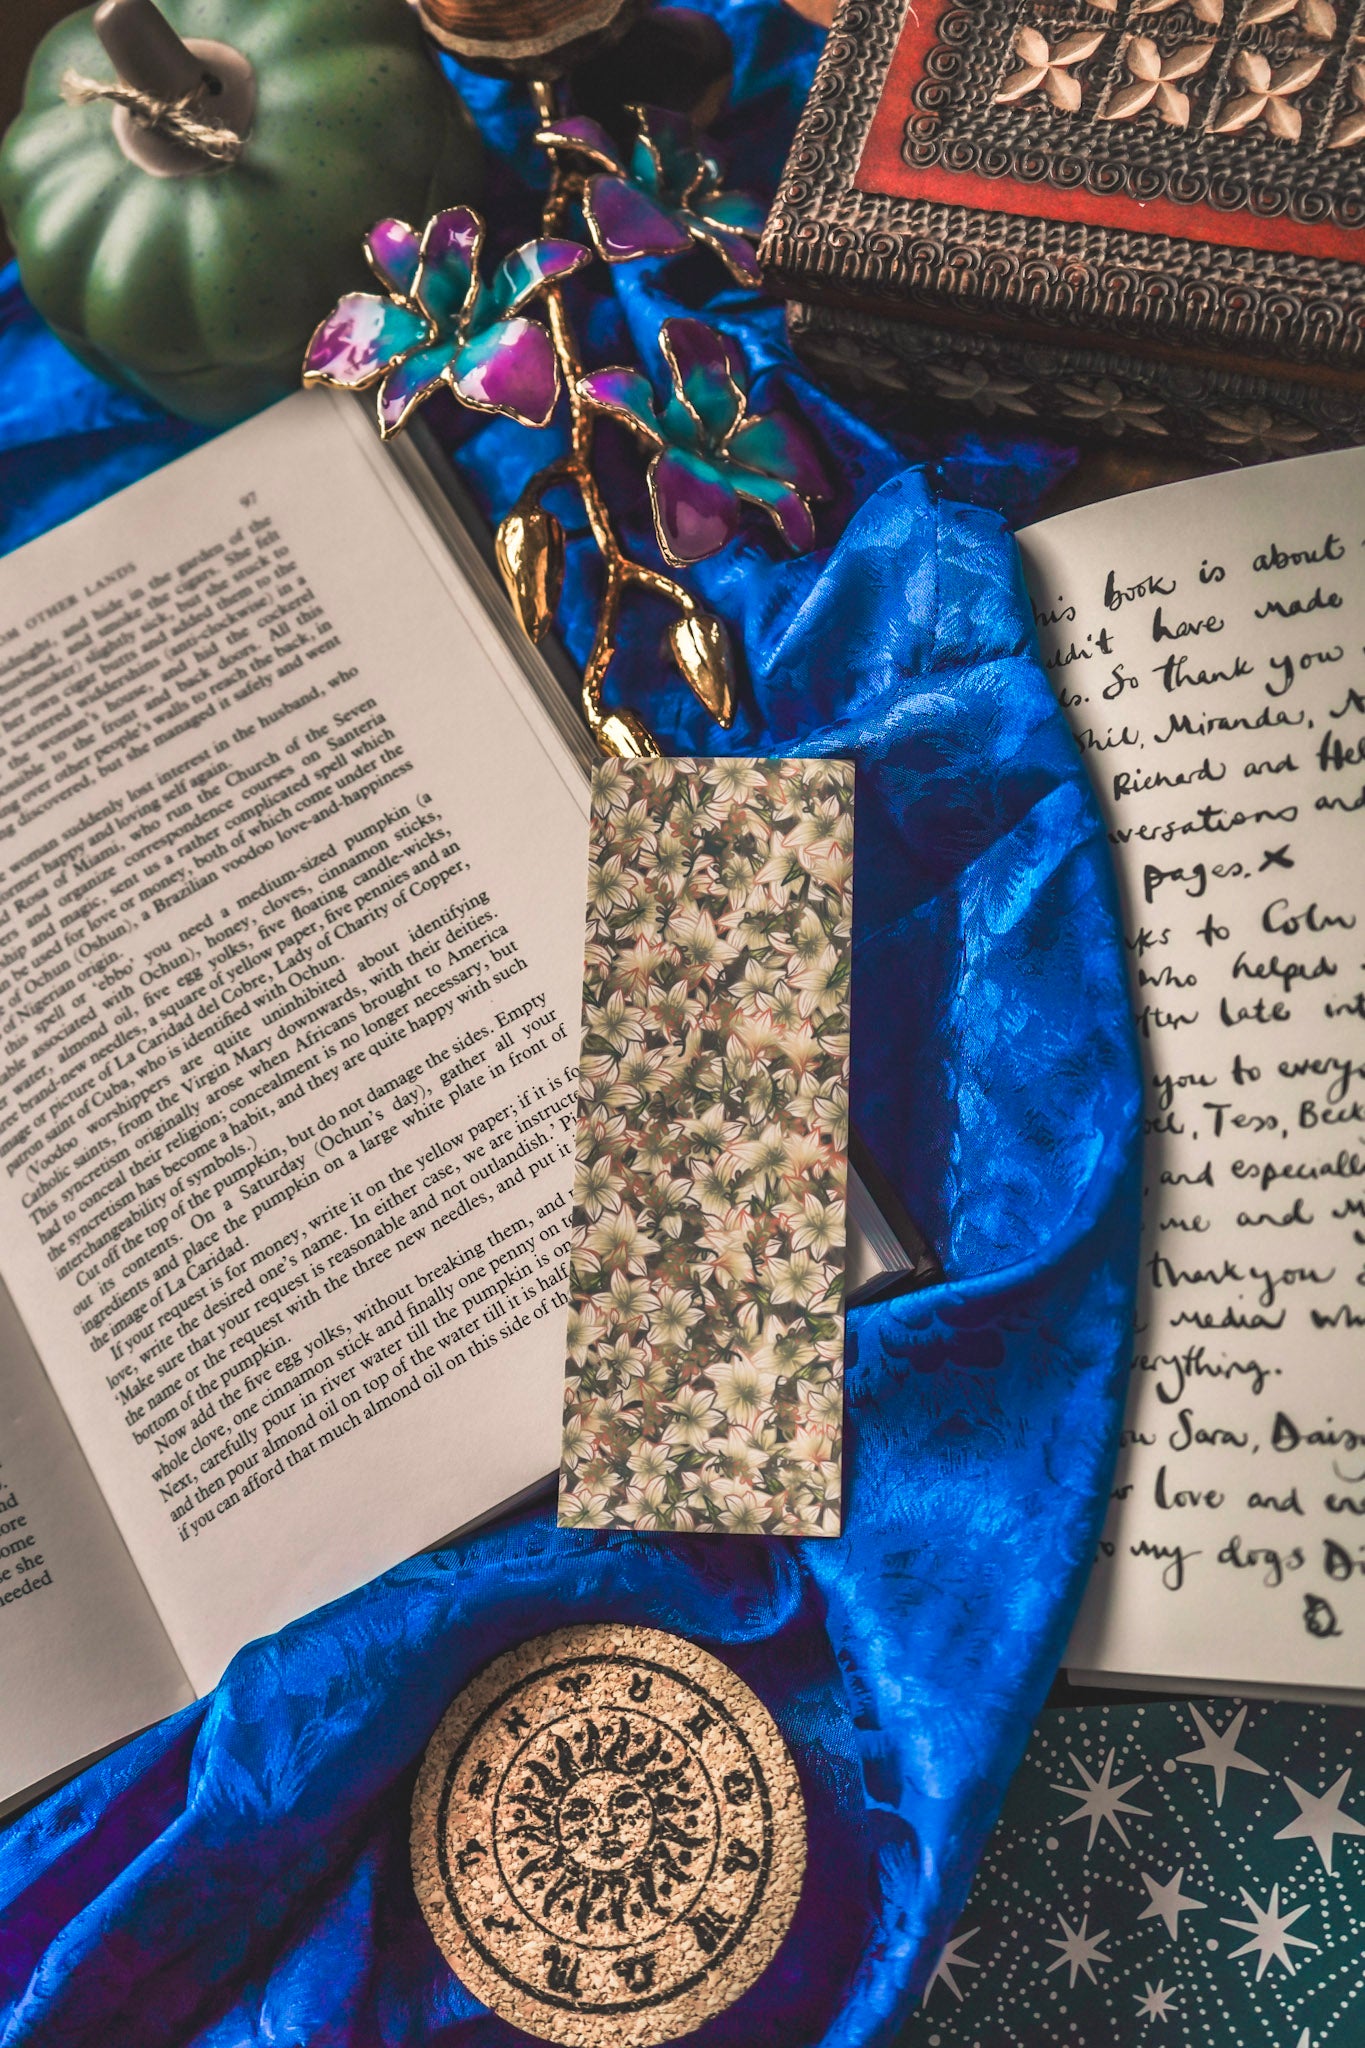 97
OM OTHER LANDS
midnight, and hide in the garden of the
husband, and smoke the cigars. She felt
on-smoker) slightly sick, but she stuck to
her own cigar butts and added them to the
n scattered widdershins (anti-clockwise) in a
the woman's house, and hid the cockerel
ossible to the front and back doors. All this
ng over other people's walls to reach the back, in
ng discovered, but she managed it safely and went
woman suddenly lost interest in the husband, who
former happy and loving self again.
d Rosa of Miami, who run the Church of the Seven
ers and organize correspondence courses on Santeria
ship and magic, sent us a rather complicated spell which
n be used for love or money, both of which come under the
e of Ochun (Oshun), a Brazilian voodoo love-and-happiness
of Nigerian origin.
this spell or 'ebbo' you need a medium-sized pumpkin (a
table associated with Ochun), honey, cloves, cinnamon sticks,
er water, almond oil, five egg yolks, five floating candle-wicks,
ree brand-new needles, a square of yellow paper, five pennies and an
image or picture of La Caridad del Cobre, Lady of Charity of Copper,
patron saint of Cuba, who is identified with Ochun.
(Voodoo worshippers are quite uninhibited about identifying
Catholic saints, from the Virgin Mary downwards, with their deities.
This syncretism originally arose when Africans brought to America
had to conceal their religion; concealment is no longer necessary, but
the syncretism has become a habit, and they are quite happy with such
interchangeability of symbols.)
Cut off the top of the pumpkin, but do not damage the sides. Empty
out its contents. On a Saturday (Ochun's day), gather all your
ingredients and place the pumpkin on a large white plate in front of
the image of La Caridad.
If your request is for money, write it on the yellow paper; if it is fo
love, write the desired one's name. In either case, we are instructe
'Make sure that your request is reasonable and not outlandish.' Pi
the name or the request with the three new needles, and put it
bottom of the pumpkin.
Now add the five egg yolks, without breaking them, and
whole clove, one cinnamon stick and finally one penny on to
Next, carefully pour in river water till the pumpkin is on
and then pour almond oil on top of the water till it is half
if you can afford that much almond oil on this side of th
nd
ore
ome
se she
needed
his book is about
uldn't have made
ds. So thank you
Phil, Miranda, N
Richard and Hel
versations and
pages. x
ks to Colm
who helped
often late int
you to every
oel, Tess, Beck
, and especiall
me and M
thank you
media wh
erything.
ou Sara, Daisy
r love and en
o my dogs Di